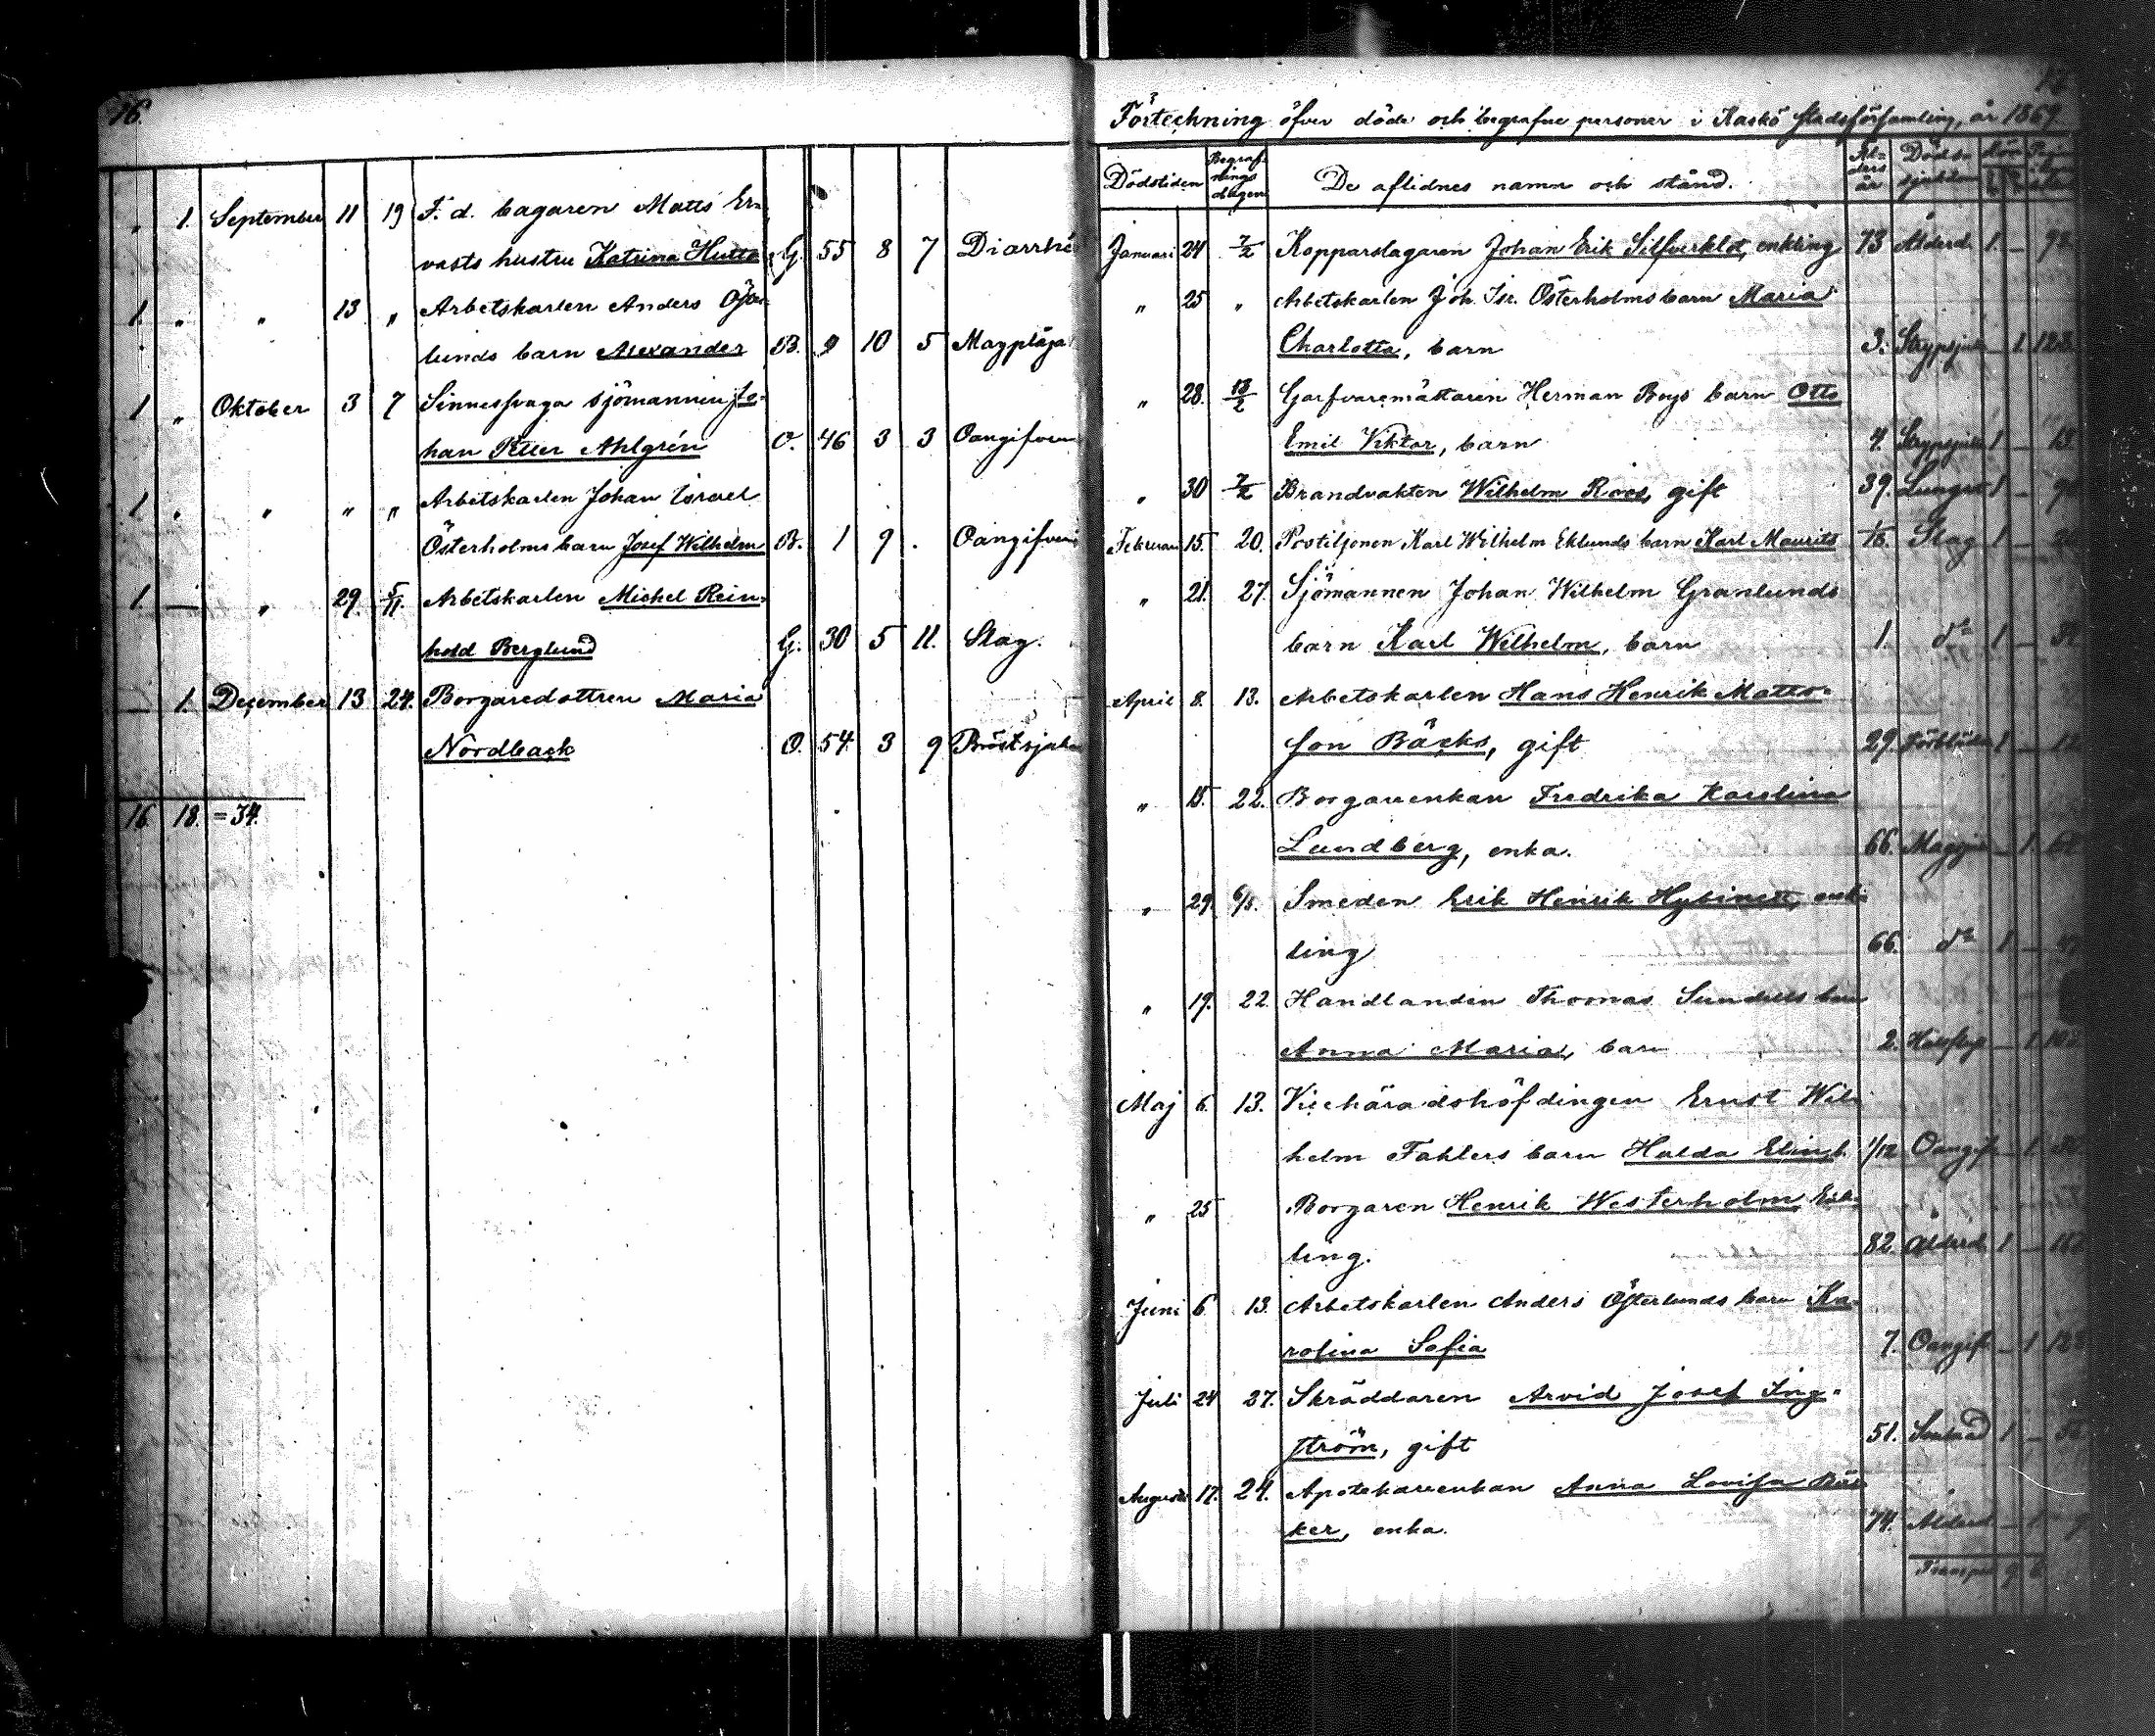 16.
1. September 11 19 F. d. bagaren Matts Er-
vasts hustru Katrina Hutta G. 55 8 7 Diarrhé
1. " " 13 " Arbetskarlen Anders Öjer-
lunds barn Alexander B. 9 10 5 Magpläga
1 " Oktober 3 7 Sinnessvaga sjömannen Jo-
han Petter Ahlgrén O. 46 3 3 Oangifven
1 " " " " Arbetskarlen Johan Israel
Österholms barn Josef Wilhelm B. 1 9 . Oangifven
1. — " 29. 5/11. Arbetskarlen Michel Rein-
hold Berglund G. 30 5 11. Slag.
1. December 13 24. Borgaredottren Maria
Nordback O. 54. 3 9 Bröstsjukd
16. 18. = 34.
Förteckning öfver döde och begrafne personer i Kaskö stadsförsamling, år 1869.
Dödstiden Begraf- nings dagen De aflidnes namn och stånd. Ål- ders år Döds- sjukdom
Januari 24 7/2 Kopparslagaren Johan Erik Silfverklot, enkling 73 Ålderd. 1 — 98
" 25 " Arbetskarlen Joh. Isr. Österholms barn Maria
Charlotta, barn 3. Strypsjuk — 1 128
" 28. 13/2 Garfvaremästaren Herman Boijs barn Otto
Emil Viktor, barn 4. Strypsjuk 1 —
" 30 7/2 Brandvakten Wilhelm Roos, gift 39. Lungs 1 —
Februari 15. 20. Postiljonen Karl Wilhelm Eklunds barn Karl Maurits Slag 1 —
" 21. 27. Sjömannen Johan Wilhelm Granlunds
barn Karl Wilhelm, barn 1. do 1 —
April 8. 13. Arbetskarlen Hans Henrik Matts-
son Bäcks, gift 29. 1 —
" 15. 22. Borgareenkan Fredrika Karolina
Lundberg, enka. 66. — 1.
" 29. 6/5. Smeden Erik Henrik Hybinett, enk-
ling 66. do 1 —
" 19. 22 Handlanden Thomas Sundells barn
Anna Maria, barn 2. — 1
Maj 6. 13. Vicehäradshöfdingen Ernst Wil-
helm Fahlers barn Hulda Elin, b. 1/12 Oangif — 1
" 25 Borgaren Henrik Westerholm, Enk-
ling. 82. Ålderd 1 —
Juni 6 13. Arbetskarlen Anders Österlunds barn Ka-
rolina Sofia 7. Oangif — 1
Juli 24 27. Skräddaren Arvid Josef Ing-
ström, gift 51. 1 —
Augusti 17. 24. Apotekareenkan Anna Lovisa Bäc-
ker, enka. 74. Ålderd — 1
Transport 9 6